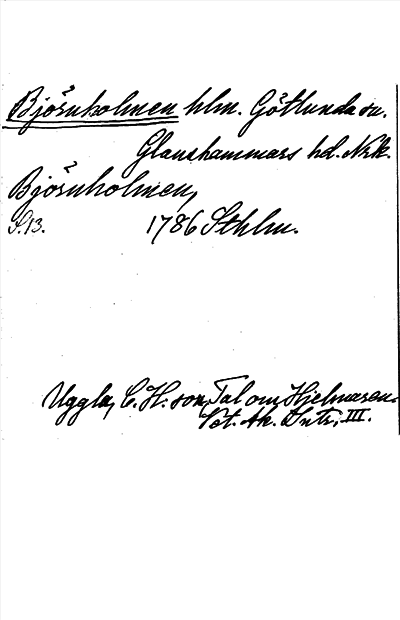 Björnholmen hlm. Götlunda sn.
Glanshammars hd. Nrk.
Björnholmen,
S. 13. 1786 Sthlm.
Uggla, C. H:son, Tal om Hjelmaren.
Vet. Ak. Intr., III.